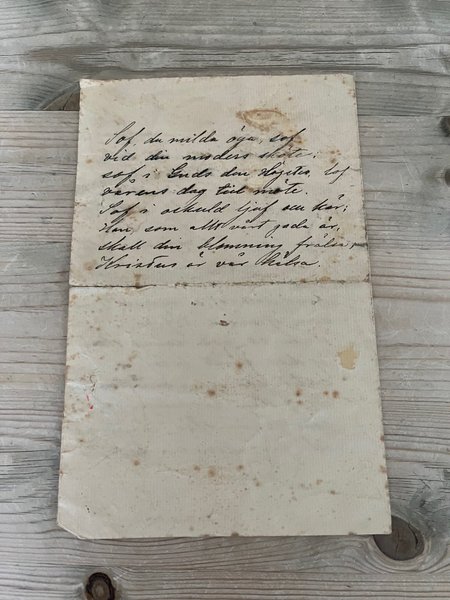 Sof, du milda öga, sof
vid din moders sköte;
sof i Guds den Högstes lof
vårens dag till möte.
Sof i oskuld ljuf och kär;
Han, som allt vårt goda är,
skall din blomning frälsa
Kristus är vår hälsa.